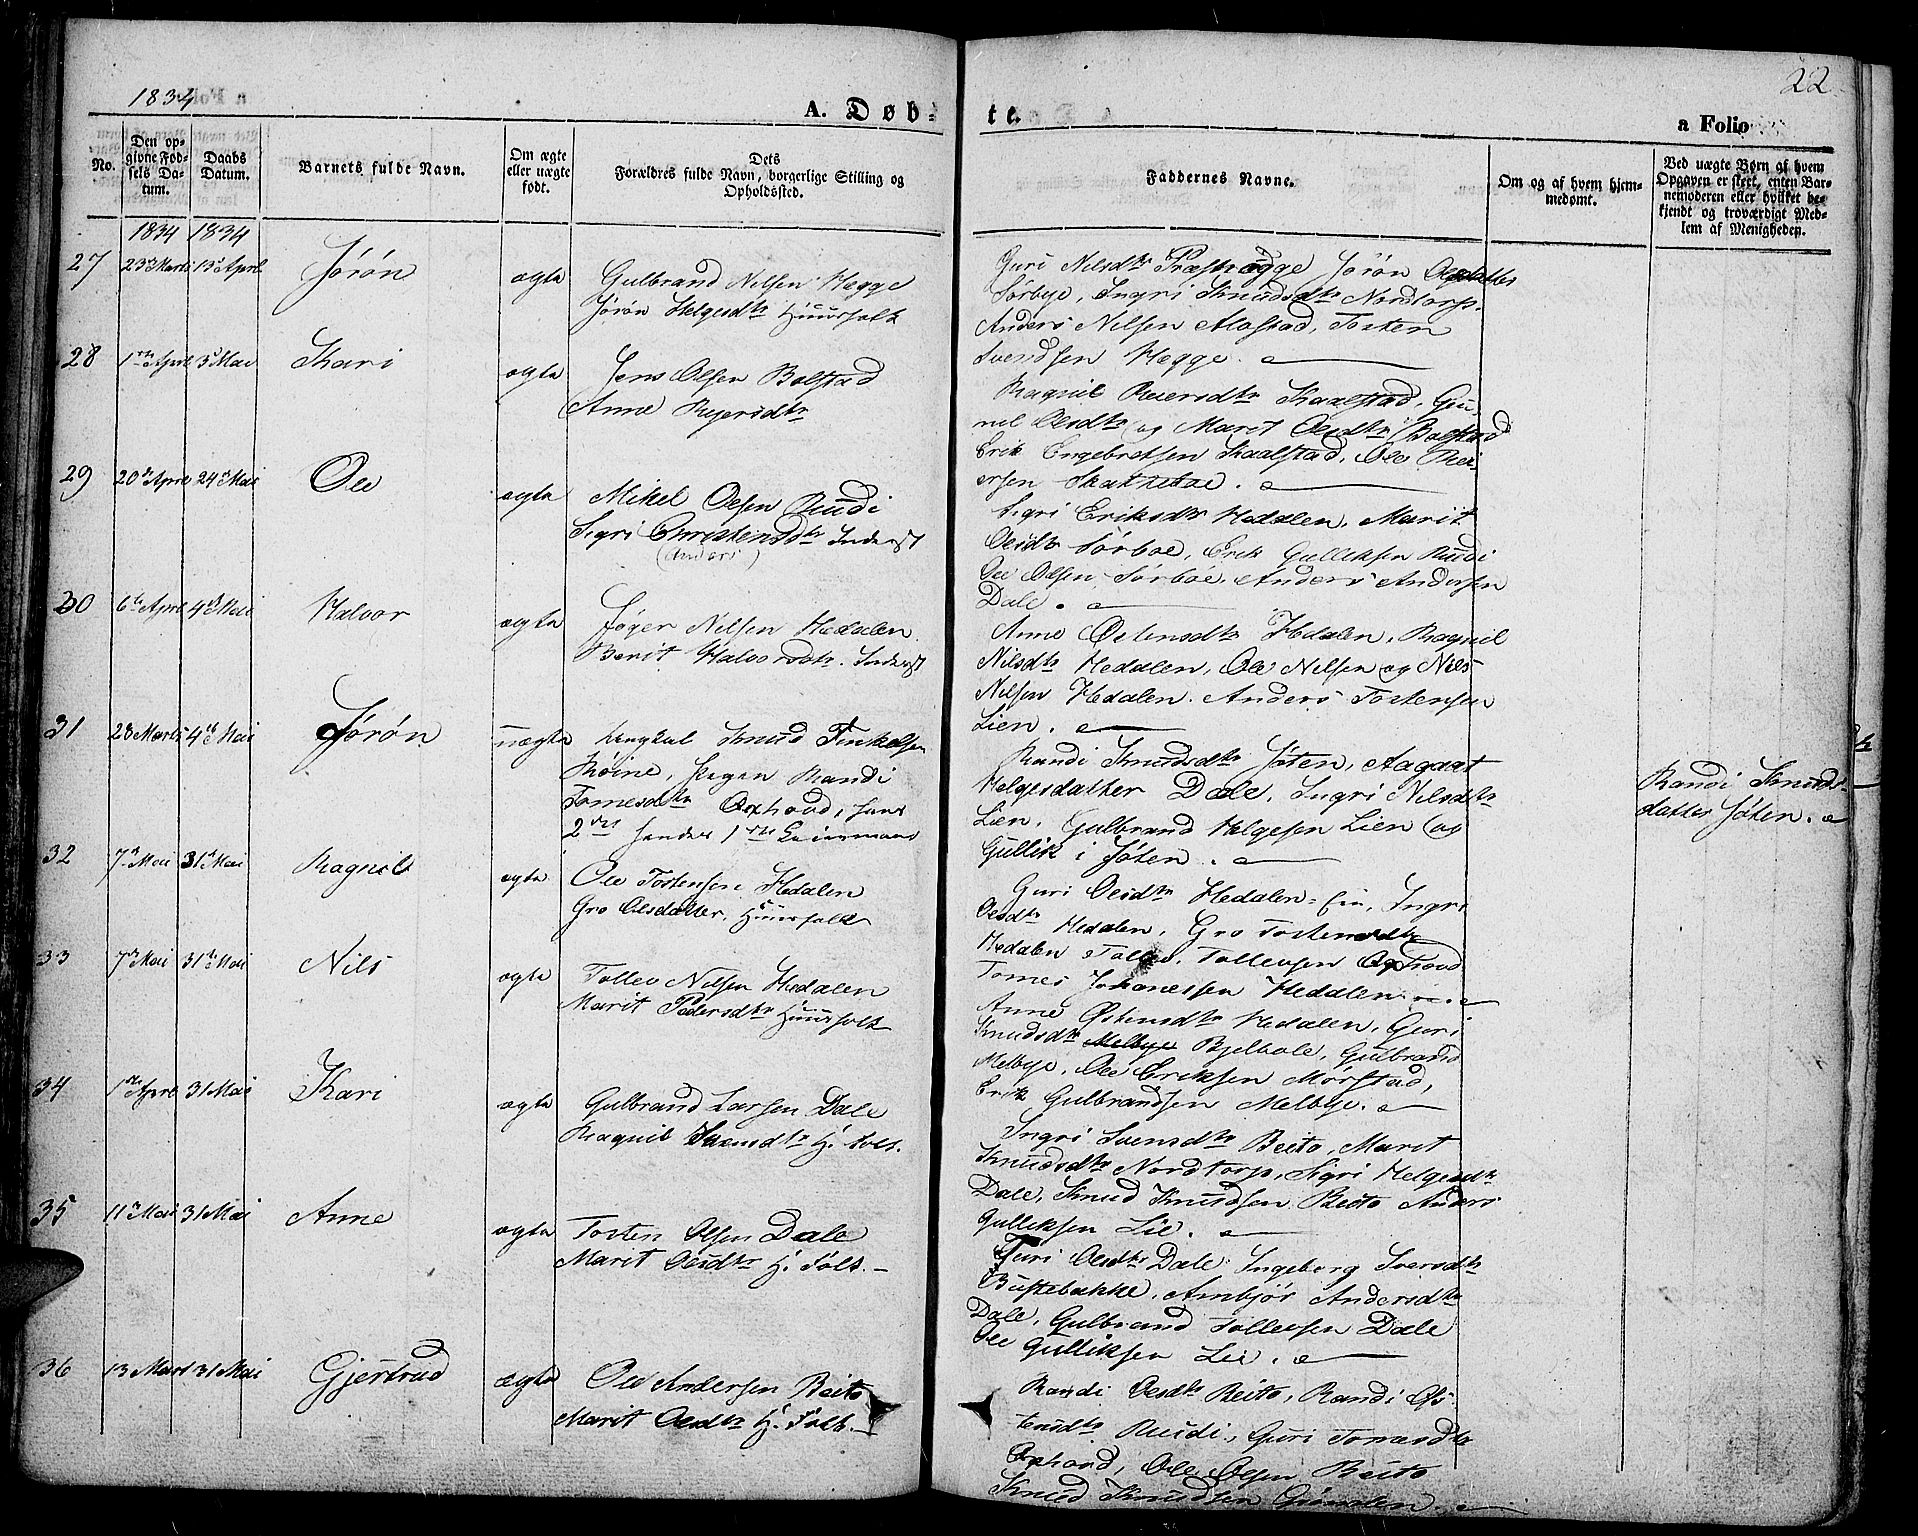 1834
A. Døb-
te.
22
a Folio
No.
Den op-
givne Fød-
sels Da-
tum.
Daabs
Datum.
Barnets fulde Navn.
Om ægte
eller uægte
født.
Dets
Forældres fulde Navn, borgerlige Stilling og
Opholdssted.
Faddernes Navne.
Om og af hvem hjem-
medømt.
Ved uægte Børn af hvem
Opgaven er skeet, enten Bar-
nemoderen eller hvilket be-
kjendt og troværdigt Med-
lem af Menigheden.
1834 1834
27 23 Marts 13 April Jørøn ægte Gulbrand Nilsen Hegge
Jørøn Helgesdtr Huusfolk
Guri Nilsdtr Præsthægge Jørøn Olsdatter
Sørbye, Ingri Knudsdtr Nordtorp.
Anders Nilsen Alfstad, Tosten
Svendsen Hegge.
28 1ste April 3 Mai Kari ægte Jens Olsen Bolstad
Anne Reyersdtr
Ragnil Reiersdtr Skaalstad, Gu-
nil Olsdtr og Marit Olsdtr Bolstad
Erik Engebretsen Skaalstad, Ole Rei-
ersen Skatteboe.
29 20de April 24de Mai Ole ægte Mikel Olsen Rudi
Sigri Christensdtr Inderst
(Anders)
Sigri Eriksdtr Hedalen, Marit
Olsdtr Sørboe, Erik Gulliksen Rudi
Ole Olsen Sørboe, Anders Andersen
Dale.
30 6te April 4de Mai Halvor ægte Jøger Nilsen Hedalen
Berit Halvorsdtr. Inderst
Anne Østensdtr Hedalen, Ragnil
Nilsdtr Hedalen, Ole Nilsen og Nils
Nilsen Hedalen. Anders Tostensen
Lien.
31 28 Marts 4de Mai Jørøn uægte Ungkal Knud Finkelsen
Røine, Pigen Randi
Tomesdtr Oxhovd, hans
2det hendes 1ste Leiermaal
Randi Knudsdtr Jøten, Aagaat
Helgesdatter Dale, Ingri Nilsdtr
Lien, Gulbrand Helgesen Lien og
Gullik i Jøten.
Randi Knuds-
datter Jøten.
32 7de Mai 31 Mai Ragnil ægte Ole Tostensen Hedalen
Gro Olsdatter, Huusfolk
Guri Olsdtr Hedalen-Eie, Ingri
Olsdtr Hedalen, Gro Tostensdtr
Hedalen Tollev Tollevsen Oxhovd
Tomes Johanessen Hedalen
33 7de Mai 31te Mai Nils ægte Tollev Nilsen Hedalen
Marit Pedersdtr Huusfolk
Anne Østensdtr Hedalen, Guri
Knudsdtr Melbye Bjelbole, Gulbrand
Melbye, Ole Eriksen Mørstad,
Erik Gulbrandsen Melbye.
34 1ste April 31 Mai Kari ægte Gulbrand Larsen Dale
Ragnil Svensdtr H. Folk.
Ingri Svensdtr Beito, Marit
Knudsdtr Nordtorp, Sigri Helgesdtr
Dale, Knud Knudsen Beito Anders
Gulliksen Lie.
35 11te Mai 31 Mai Anne ægte Tosten Olsen Dale
Marit Olsdtr H. Folk.
Guri Olsdtr Dale, Ingeborg Sversdtr
Buftebakke, Ambjør Andersdtr
Dale, Gulbrand Tollevsen Dale
Ole Gulliksen Lie.
36 13 Mart 31 Mai Gjertrud ægte Ole Andersen Beito
Marit Olsdtr H. Folk.
Randi Olsdtr Beito, Randi Øs-
tensdtr Rudi, Guri Tomesdtr
Oxhovd, Ole Olsen Beito
Knud Knudsen Grønolen.